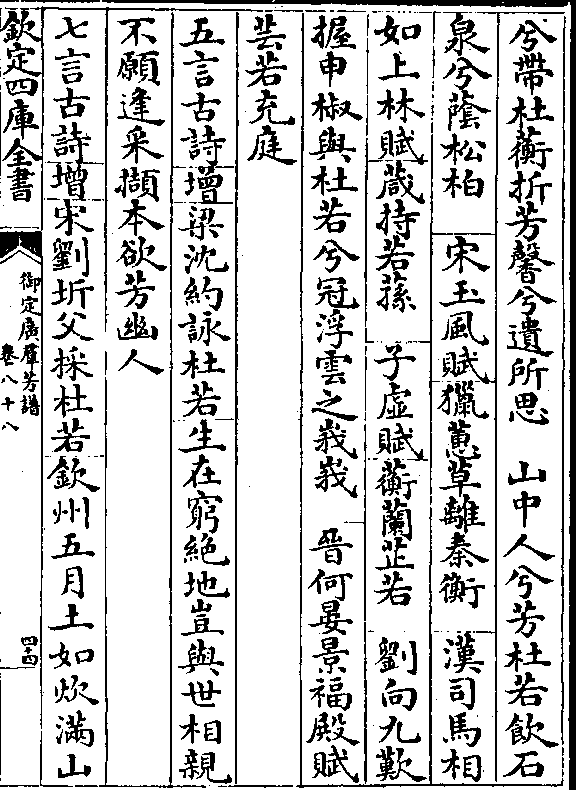 兮帶杜蘅折芳馨兮遺所思　山中人兮芳杜若飲石
泉兮蔭松柏　宋玉風賦獵蕙草離秦衡　漢司馬相
如上林賦葴持若蓀　子虛賦蘅蘭芷若　劉向九歎
握申椒與杜若兮冠浮雲之峩峩　晉何晏景福殿賦
芸若充庭
五言古詩增梁沈約詠杜若生在窮絶地豈與世相親
不願逢采擷本欲芳幽人
七言古詩增宋劉圻父採杜若欽州五月土如炊滿山
欽定四庫全書
御定廣羣芳譜
卷八十八
四十四